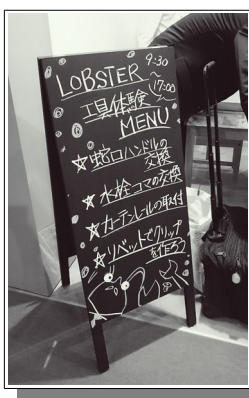 LOBSTER 9:30
～17:00
工具体験
MENU
☆蛇口ハンドルの
交換
☆水栓コマの交換
☆カーテンレールの取付
☆リベットでクリップ
を作ろう